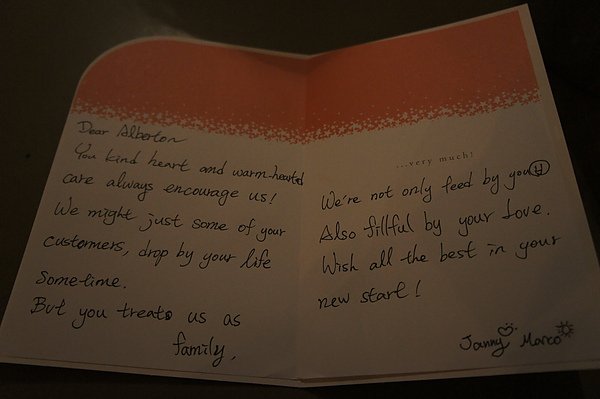 Dear Alberton
You kind heart and warm-hearted
care always encourage us!
We might just some of your
customers, drop by your life
Sometime.
But you treats us as
family.
...very much!
We're not only feed by you
Also fillful by your love.
Wish all the best in your
new start!
Janny Marco